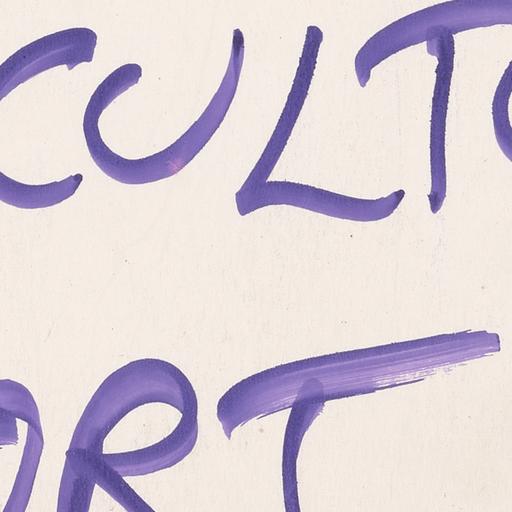 CULT
RT